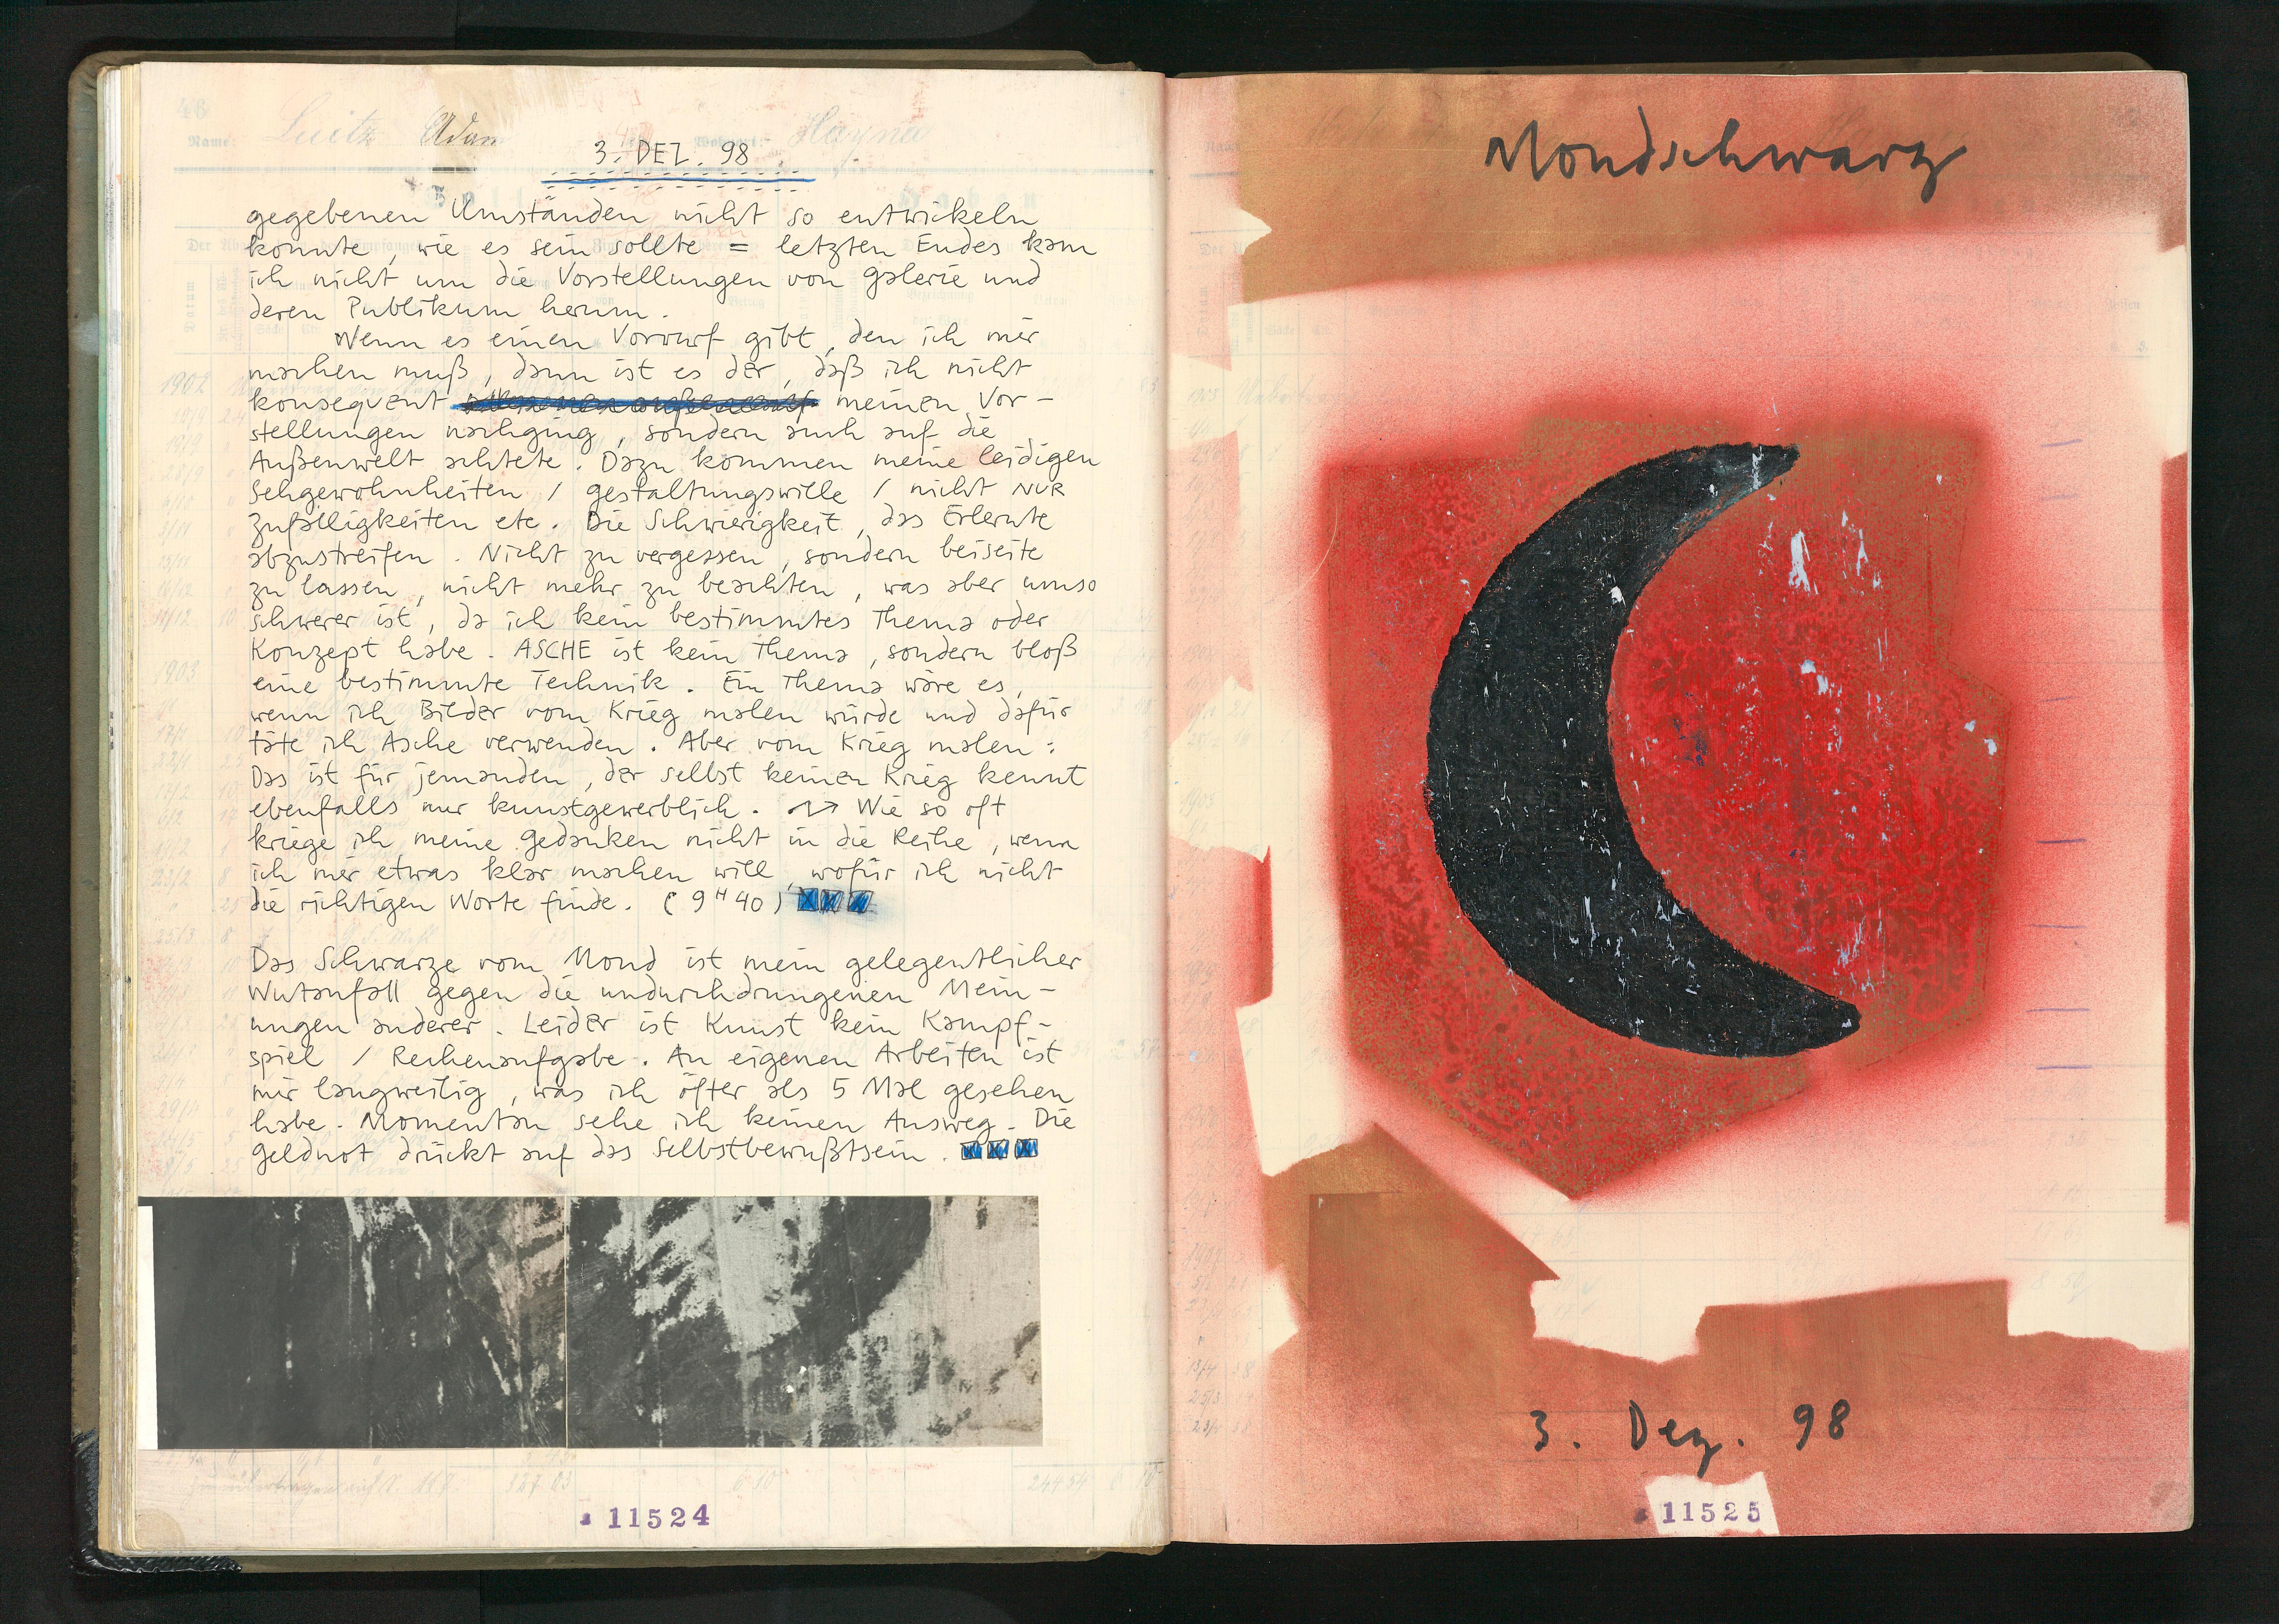 46
Name: Luitz Adam
Hayna
3. DEZ. 98
gegebenen Umständen nicht so entwickeln
konnte, wie es sein sollte = letzten Endes kam
ich nicht um die Vorstellungen von Galerie und
deren Publikum herum.
Wenn es einen Vorwurf gibt, den ich mir
machen muß, dann ist es der, daß ich nicht
konsequent meinen Vor-
stellungen nachging, sondern auch auf die
Außenwelt achtete. Dazu kommen meine leidigen
Sehgewohnheiten / Gestaltungswille / nicht NUR
Zufälligkeiten etc. Die Schwierigkeit, das Erlernte
abzustreifen. Nicht zu vergessen, sondern beiseite
zu lassen, nicht mehr zu beachten, was aber umso
schwerer ist, da ich kein bestimmtes Thema oder
Konzept habe. ASCHE ist kein Thema, sondern bloß
eine bestimmte Technik. Ein Thema wäre es,
wenn ich Bilder vom Krieg malen würde und dafür
täte ich Asche verwenden. Aber vom Krieg malen:
Das ist für jemanden, der selbst keinen Krieg kennt
ebenfalls nur kunstgewerblich. Wie so oft
kriege ich meine Gedanken nicht in die Reihe, wenn
ich mir etwas klar machen will, wofür ich nicht
die richtigen Worte finde. (9 H 40)
Das Schwarze vom Mond ist mein gelegentlicher
Wutanfall gegen die undurchdrungenen Mein-
ungen anderer. Leider ist Kunst kein Kampf-
spiel / Rechenaufgabe. An eigenen Arbeiten ist
mir langweilig, was ich öfter als 5 Mal gesehen
habe. Momentan sehe ich keinen Ausweg. Die
Geldnot drückt auf das Selbstbewußtsein.
11524
Mondschwarz
3. Dez. 98
11525